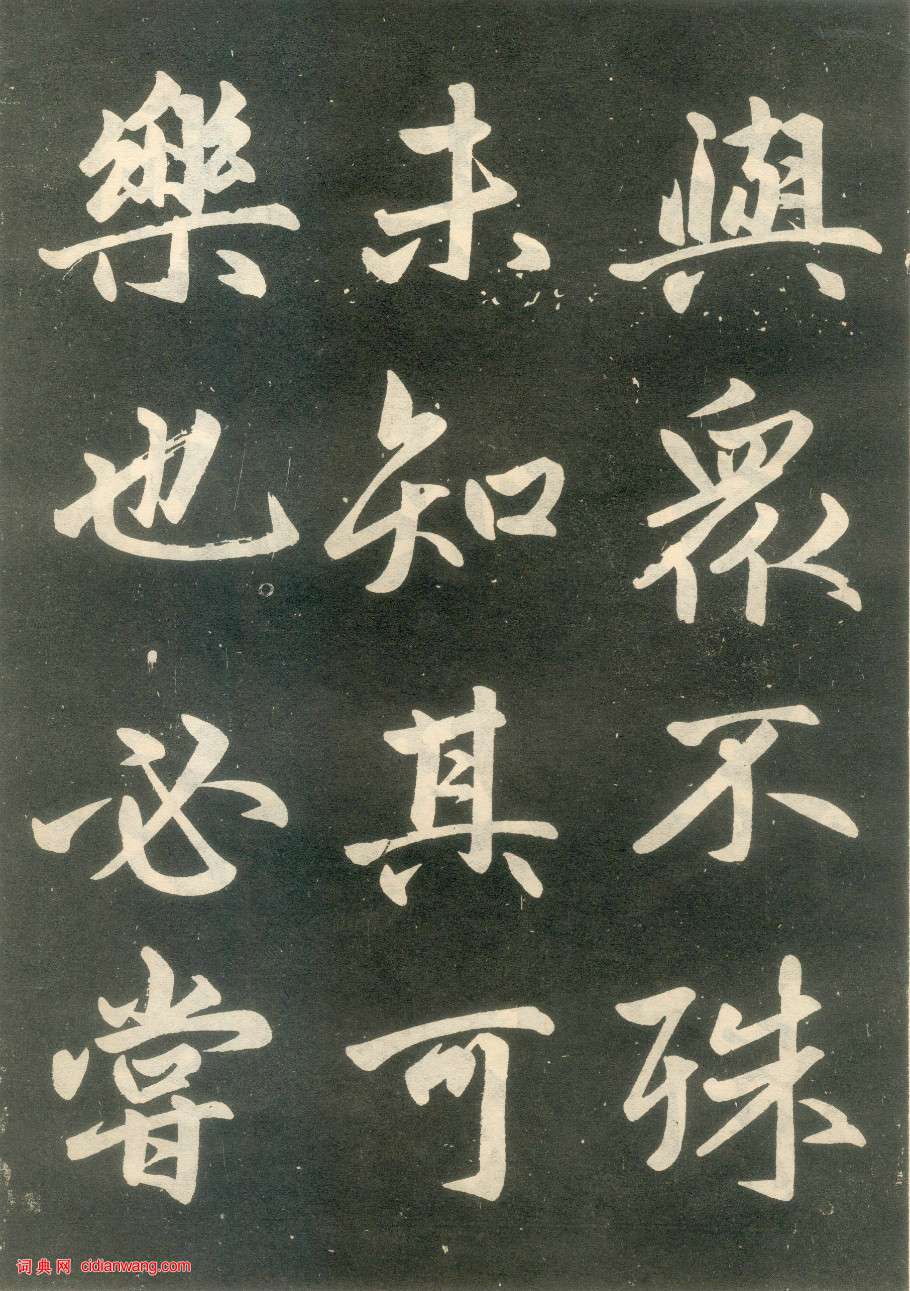 與衆不殊
未知其可
樂也必嘗
词典网 cidianwang.com